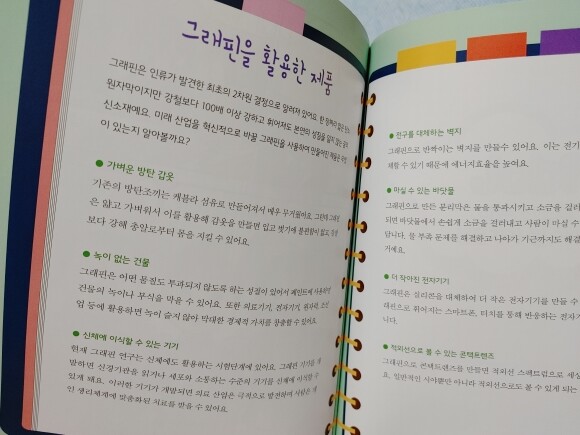 그래핀을 활용한 제품
그래핀은 인류가 발견한 최초의 2차원 결정으로 알려져 있어요. 한 장짜리 얇은 탄소
원자막이지만 강철보다 100배 이상 강하고 휘어져도 본연의 성질을 잃지 않는 꿈의
신소재예요. 미래 산업을 혁신적으로 바꿀 그래핀을 사용하여 만들어진 제품은 어떤 것
이 있는지 알아볼까요?
● 가벼운 방탄 갑옷
기존의 방탄조끼는 케블라 섬유로 만들어져서 매우 무거웠어요. 그런데 그래핀
은 얇고 가벼워서 이를 활용해 갑옷을 만들면 입고 벗기에 불편함이 없고, 강철
보다 강해 총알로부터 몸을 지킬 수 있어요.
● 녹이 없는 건물
그래핀은 어떤 물질도 투과되지 않도록 하는 성질이 있어서 페인트에 사용하면
건물의 녹이나 부식을 막을 수 있어요. 또한 의료기기, 전자기기, 원자력, 조선
업 등에 활용하면 녹이 슬지 않아 막대한 경제적 가치를 창출할 수 있어요.
● 신체에 이식할 수 있는 기기
현재 그래핀 연구는 신체에도 활용하는 시험단계에 있어요. 그래핀 기기를 개
발하면 신경기관을 읽거나 세포와 소통하는 수준의 기기를 신체에 이식할 수
있게 돼요. 이러한 기기가 개발되면 의료 산업은 극적으로 발전하여 사람은 개
인 생리체계에 맞춤화된 치료를 받을 수 있어요.
● 전구를 대체하는 벽지
그래핀으로 반짝이는 벽지를 만들수 있어요. 이는 전기
체할 수 있기 때문에 에너지효율을 높여요.
● 마실 수 있는 바닷물
그래핀으로 만든 분리막은 물을 통과시키고 소금을 걸러
되면 바닷물에서 손쉽게 소금을 걸러내고 사람이 마실 수
답니다. 물 부족 문제를 해결하고 나아가 기근까지도 해결
거예요.
● 더 작아진 전자기기
그래핀은 실리콘을 대체하여 더 작은 전자기기를 만들 수
래핀으로 휘어지는 스마트폰, 터치를 통해 반응하는 전자기
니다.
● 적외선으로 볼 수 있는 콘택트렌즈
그래핀으로 콘택트렌즈를 만들면 적외선 스펙트럼으로 세상
요. 일반적인 시야뿐만 아니라 적외선으로도 볼 수 있게 되는